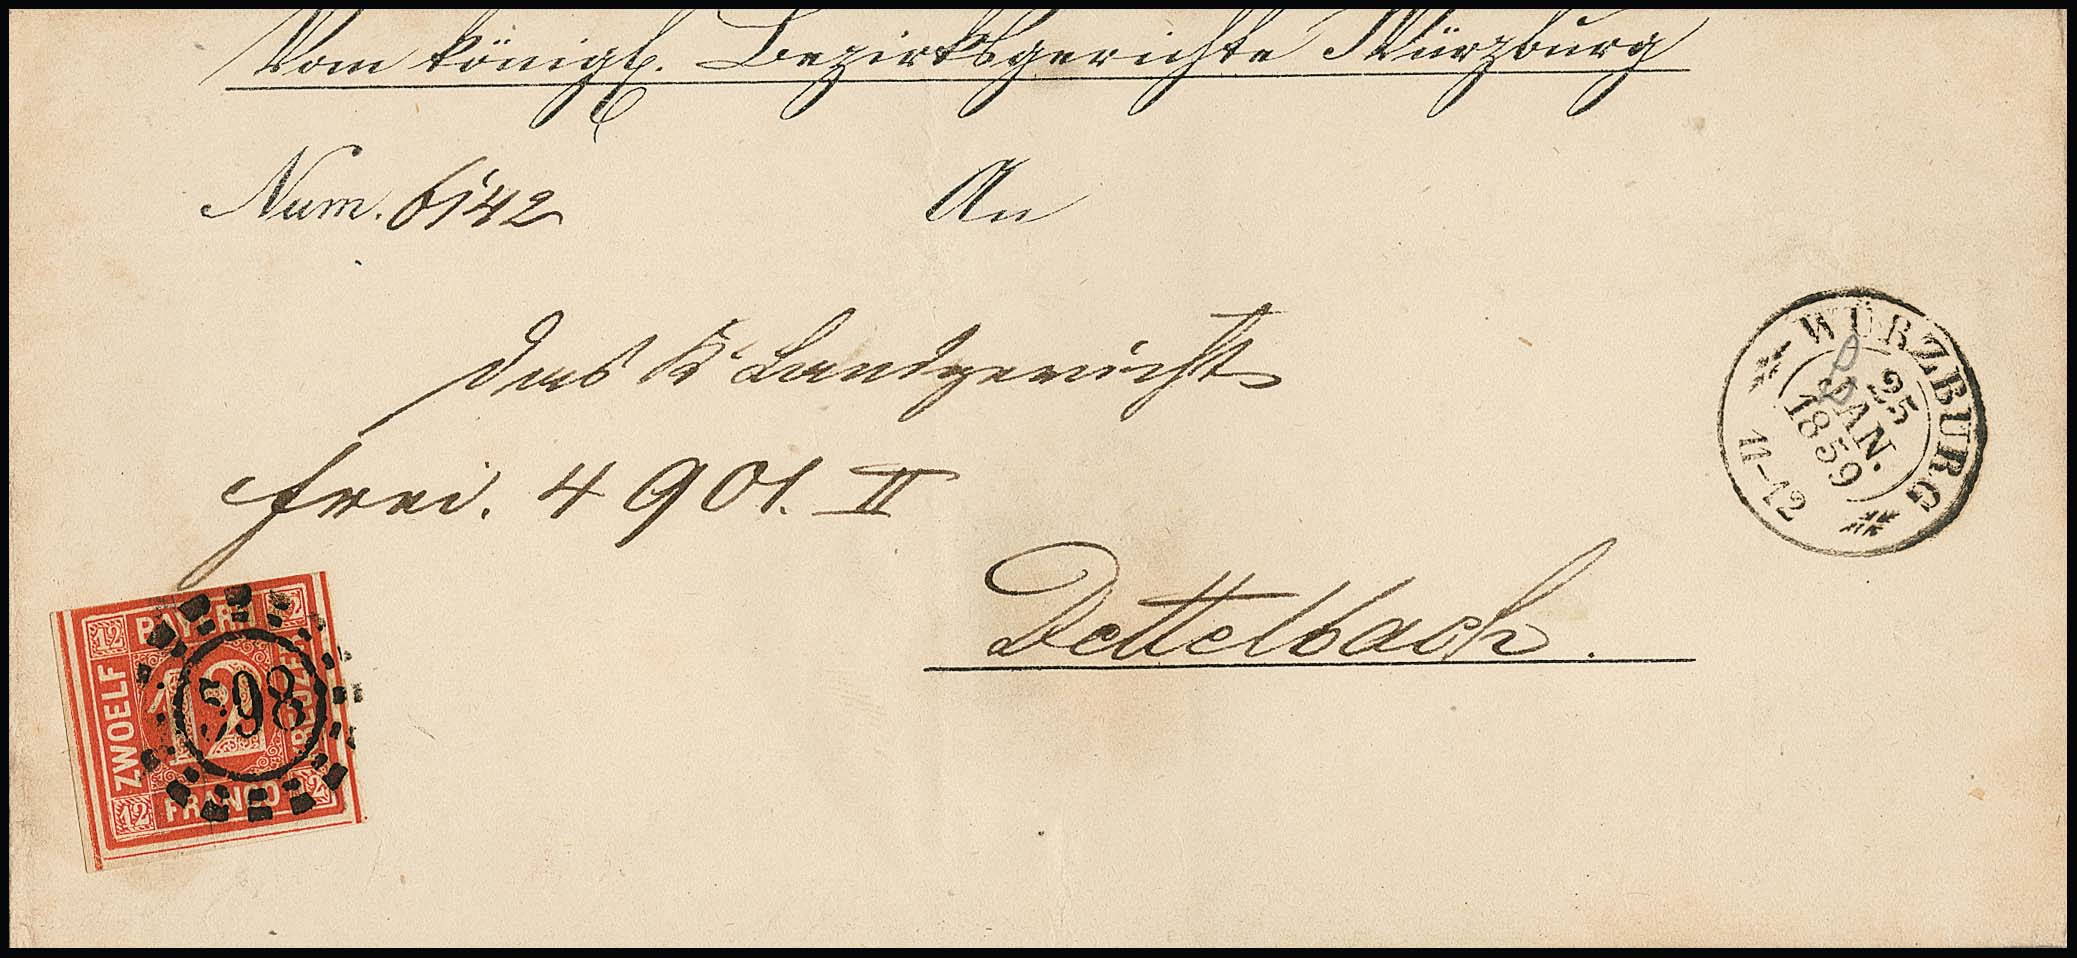 Vom königl. Bezirksgerichte Würzburg
Num. 6142
An
das K Landgericht
frei. 4901. II
Dettelbach.
WÜRZBURG
25
JAN.
1859
11-12
BAYERN
12
12
ZWOELF
12
KREUZER
598
12
FRANCO
12